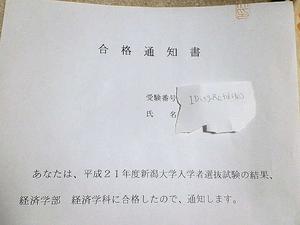 合格通知書
受験番号
氏名
あなたは、平成２１年度新潟大学入学者選抜試験の結果、
経済学部　経済学科に合格したので、通知します。